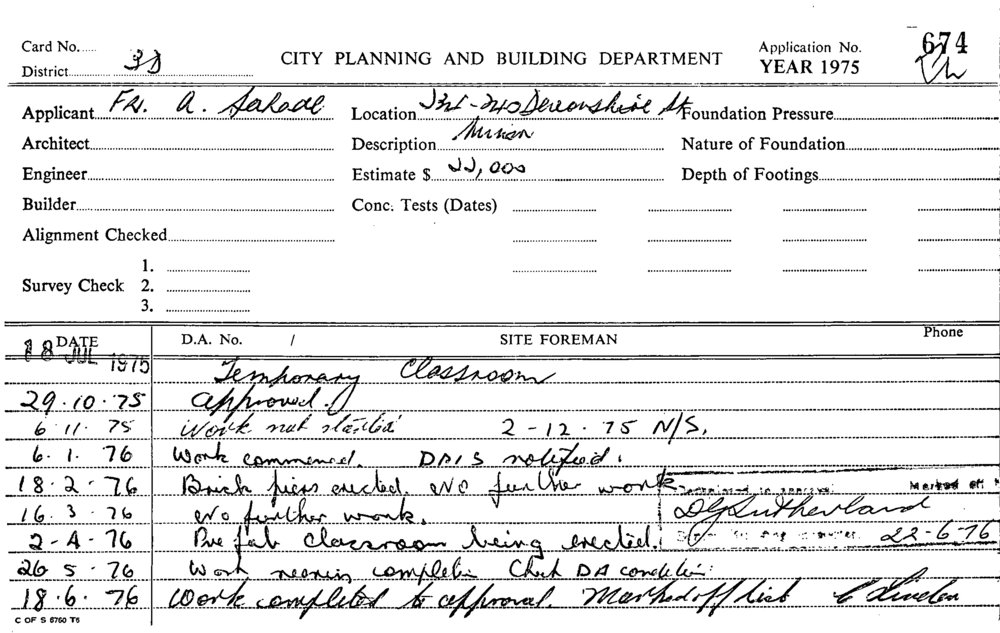 Card No.
District 3D
CITY PLANNING AND BUILDING DEPARTMENT
Application No. 674
YEAR 1975
Applicant Fr. A.
Location Devonshire St
Foundation Pressure
Architect
Description Minor
Nature of Foundation
Engineer
Estimate $ 22,000
Depth of Footings
Builder
Conc. Tests (Dates)
Alignment Checked
Survey Check 1.
2.
3.
DATE D.A. No. / SITE FOREMAN Phone
18 JUL 1975 Temporary Classroom
29.10.75 Approved.
6.11.75 Work not started 2-12.75 N/S.
6.1.76 Work commenced. notified.
18.2.76 Brick piers erected. No further work
16.3.76 No further work. DG Sutherland
2-4-76 Pre fab classroom being erected. 22-6-76
26 5.76 Work nearing completion Check DA condition
18.6.76 Work completed to approval. Marked off list
C OF S 6760 T6